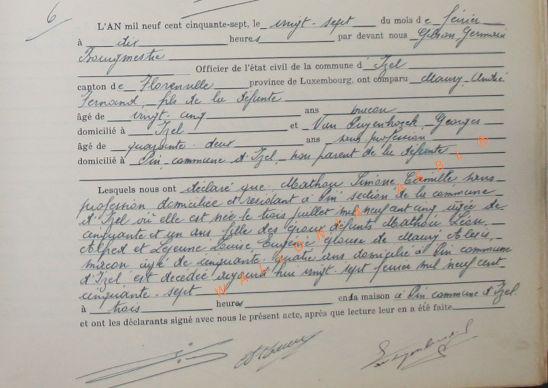 6
L'AN mil neuf cent cinquante-sept, le vingt-sept du mois de février
à dix heures par devant nous Gibson, Germain
Bourgmestre
Officier de l'état civil de la commune d'Izel
canton de Florenville province de Luxembourg, ont comparu Maury, André
Fernand, fils de la défunte
âgé de vingt-cinq ans maçon
domicilié à Izel et Van Puyenhoeck, Georges
âgé de quarante-deux ans sans profession
domicilié à Pin commune d'Izel, non parent de la défunte
Lesquels nous ont déclaré que Mathou Simone Camille sans
profession domiciliée et résidant à Pin section de la commune
d'Izel où elle est née le trois juillet mil neuf cent cinq âgée de
cinquante et un ans fille des époux défunts Mathou Léon,
Alfred et Lejeune Louise Eugénie épouse de Maury Alexis,
maçon âgé de cinquante-quatre ans domicilié à Pin commune
d'Izel est décédée aujourd'hui vingt sept février mil neuf cent
cinquante-sept
à trois heures en sa maison à Pin commune d'Izel
et ont les déclarants signé avec nous le présent acte, après que lecture leur en a été faite